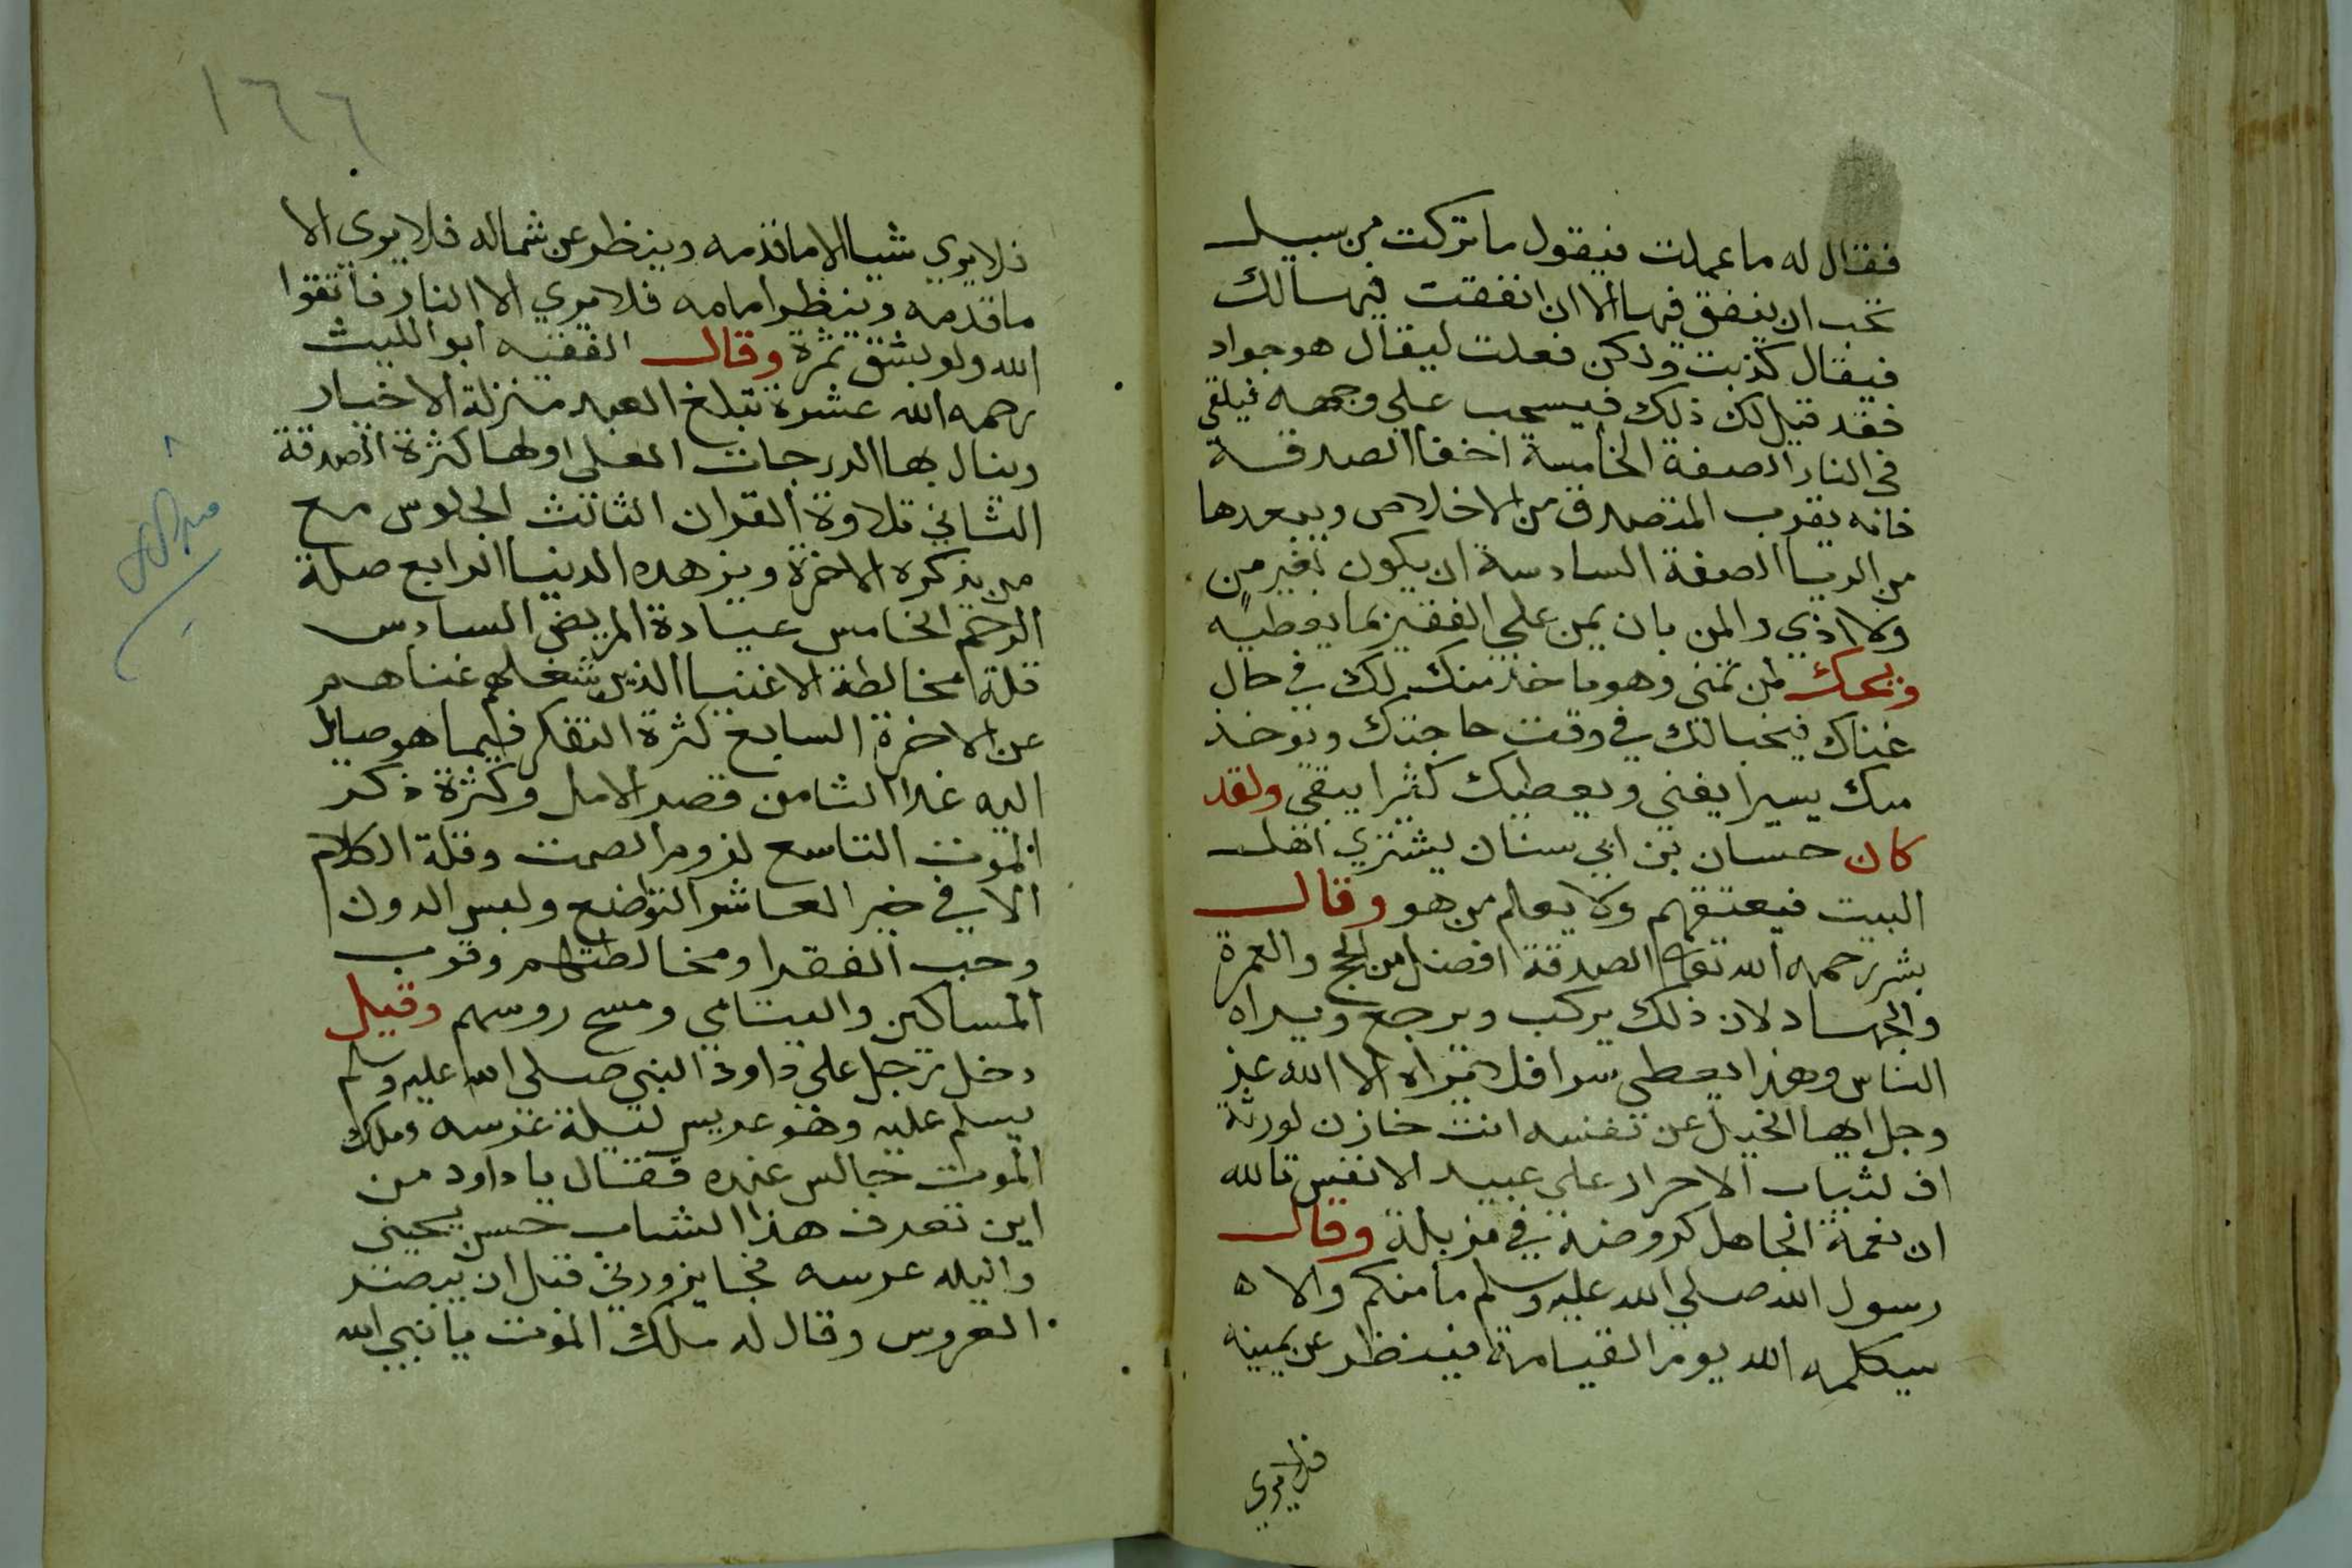 فقال له ما عملت فيقول ما تركت من سبيل
تحب ان ينفق فيها الا ان انفقت فيها لك
فيقال كذبت ولكن فعلت ليقال هو جواد
فقد قيل لك ذلك فيسحب على وجهه فيلقى
في النار الصفة الخامسة اخفا الصدقة
فانه يقرب المتصدق من الاخلاص ويبعدها
من الريا الصفة السادسة ان يكون بغير من
ولا اذي والمن بان يمن علي الفقير بما يعطيه
ويحك لمن تمنى وهو ما خذ منك لك في حال
غناك فيخبا لك في وقت حاجتك ويوخذ
منك يسيرا يفنى ويعطيك كثيرا يبقي ولقد
كان حسان بن ابي سنان يشتري اهل
البيت فيعتقهم ولا يعلم من هو وقال
بشر رحمه الله تعا الصدقة افضل من الحج والعمرة
والجهاد لان ذلك يركب ويرجع ويراه
الناس وهذا يعطي سرا فلا يراه الا الله عز
وجل ايها البخيل عن نفسه انت خازن لورثة
اف لثياب الاحرار علي عبيد الانفس تالله
ان نعمة الجاهل كروضة في مزبلة وقال
رسول الله صلي الله عليه وسلم ما منكم والا ه
سيكلمه الله يوم القيامة فينظر عن يمينه
فلا يري
١٦٦
فلا يري شيا الا ما قدمه وينظر عن شماله فلا يري الا
ما قدمه وينظر امامه فلا يري الا النار فاتقوا
الله ولو بشق تمرة وقال الفقيه ابو الليث
رحمه الله عشرة تبلغ العبد منزلة الاخيار
وينال بها الدرجات العلي اولها كثرة الصدقة
الثاني تلاوة القران الثالث الجلوس مع
من يذكره الاخرة ويزهده الدنيا الرابع صلة
الرحم الخامس عيادة المريض السادس
قلة مخالطة الاغنيا الذين شغلهم غناهم
عن الاخرة السابع كثرة التفكر فيما هو صاير
اليه غدا الثامن قصر الامل وكثرة ذكر
الموت التاسع لزوم الصمت وقلة الكلام
الا في خير العاشر التواضع ولبس الدون
وحب الفقرا ومخالطتهم وقرب
المساكين واليتامي ومسح روسهم وقيل
دخل رجل على داود النبي صلى الله عليه وسلم
يسلم عليه وهو عريس ليلة عرسه وملك
الموت جالس عنده فقال يا داود من
اين تعرف هذا الشاب حسن يحيني
والليله عرسه فجا يزورني قبل ان يبصر
العروس وقال له ملك الموت يا نبي الله